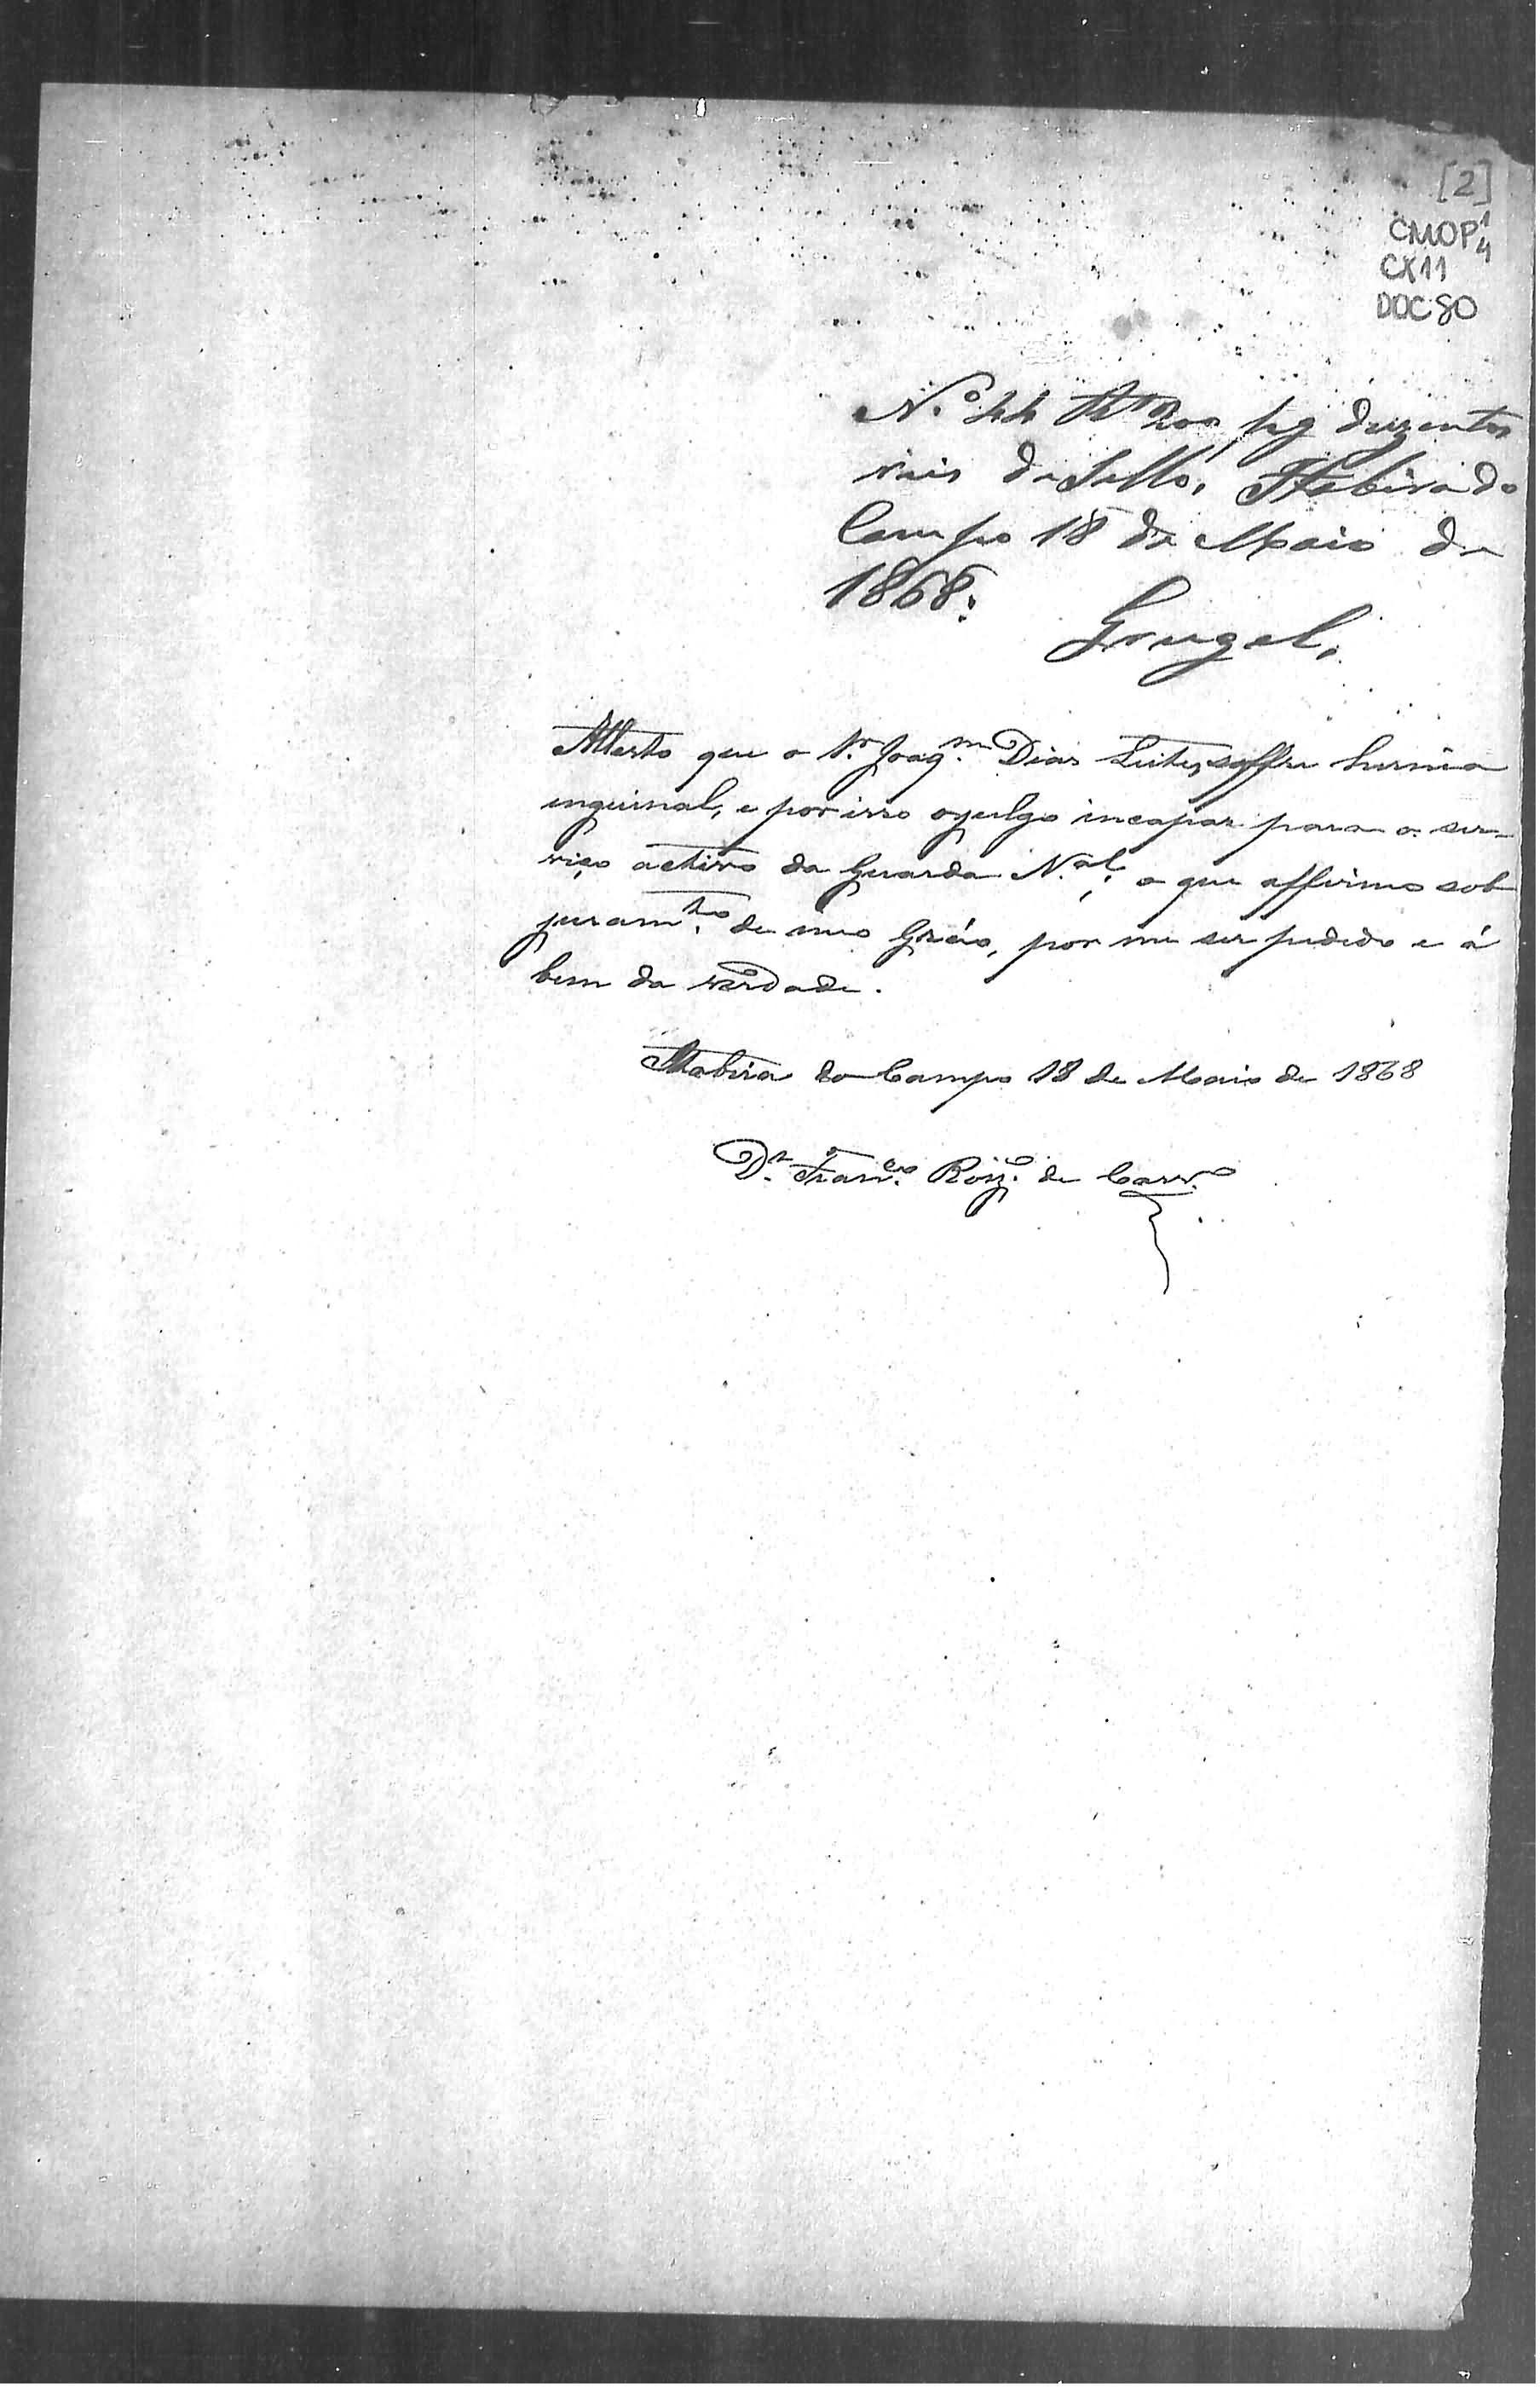 [2]
CMOP 1/4
CX11
DOC 80
N.º 44 Rs 200, pg duzentos
reis de Sello, Itabira do
Campo 18 de Maio de
1868.
Gurgel.
Attesto que o Sr. Joaqm. Dias Leite, soffre hernia
inguinal, e por isso o julgo incapaz para o ser-
viço activo da Guarda N.al; o que affirmo sob
juramto. de meo Gráo, por me ser pedido e á
bem da verdade.
Itabira do Campo 18 de Maio de 1868
Dr. Franco. Roiz. de Carvo.